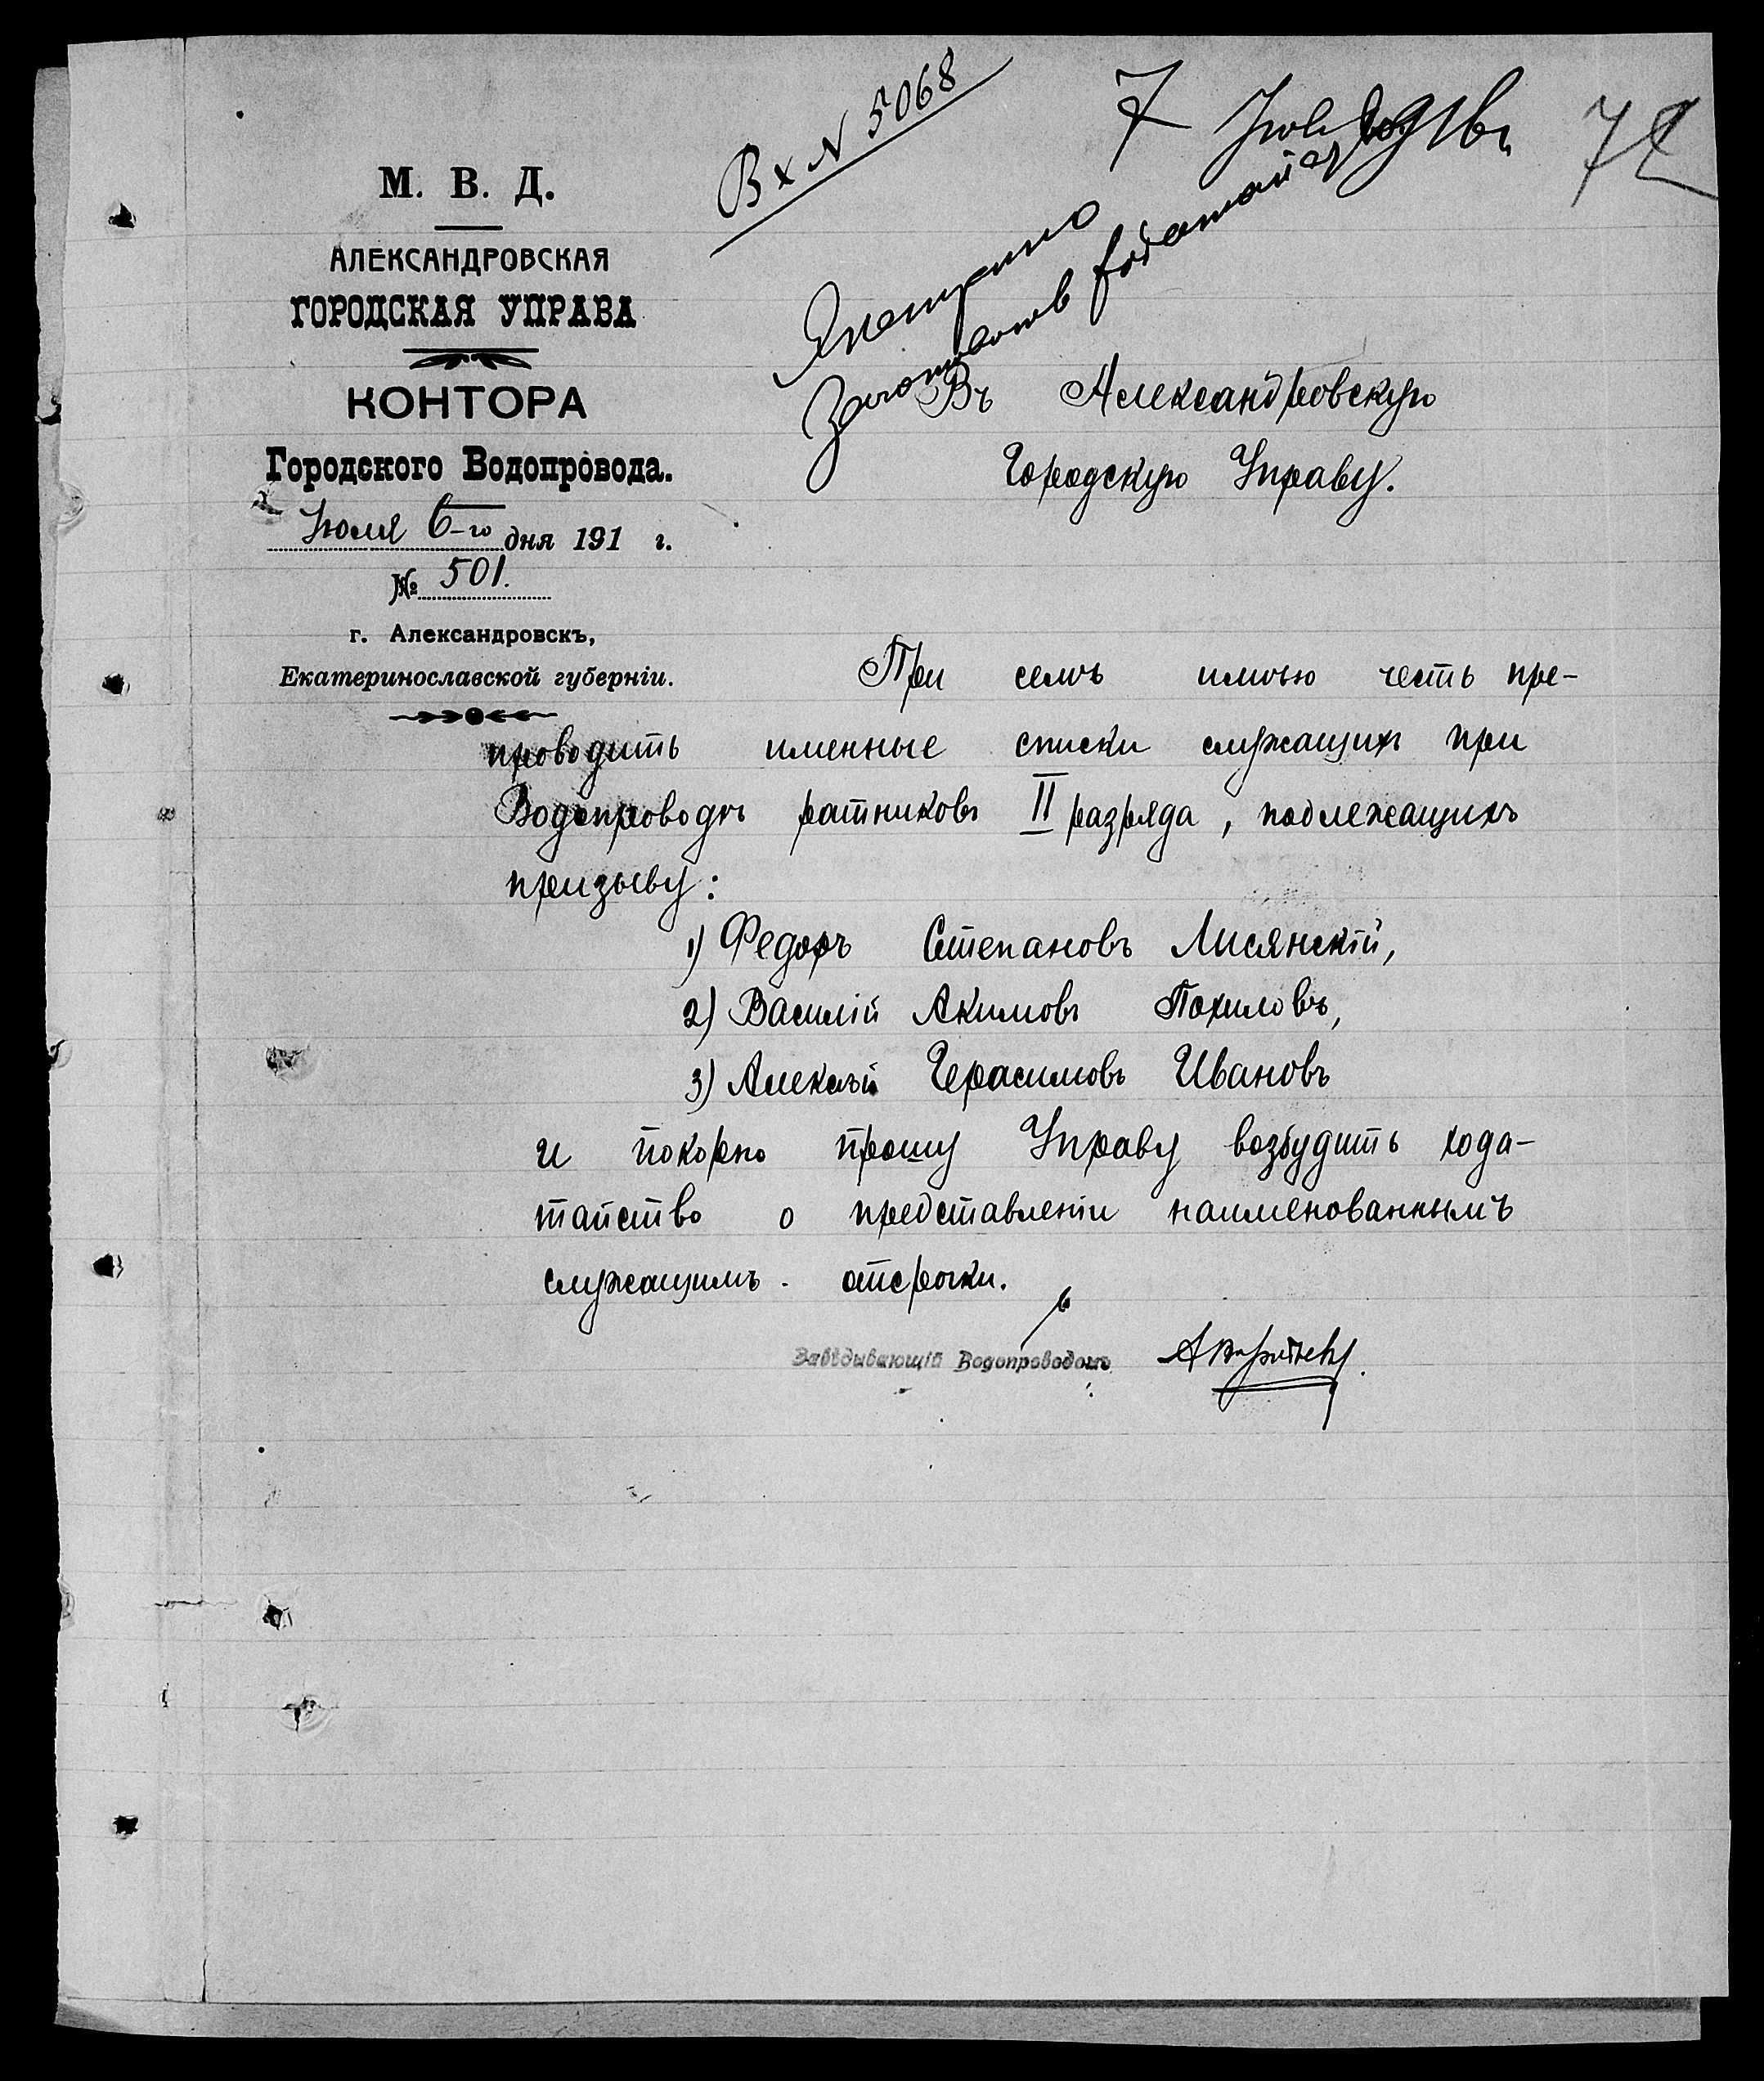 Вх N 5068
7 Июля 1916 г.
72
М. В. Д.
АЛЕКСАНДРОВСКАЯ
ГОРОДСКАЯ УПРАВА
КОНТОРА
Городского Водопровода.
Июля 6-го дня 191 г.
№ 501.
г. Александровскъ,
Екатеринославской губернiи.
Въ Александровскую
Городскую Управу.
При семъ имѣю честь пре-
проводить именные списки служащихъ при
Водопроводѣ ратниковъ II разряда, подлежащихъ
призыву:
1) Федоръ Степановъ Лисянскiй,
2) Василiй Акимовъ Похиловъ,
3) Алексѣй Герасимовъ Ивановъ
и покорно прошу Управу возбудить хода-
тайство о представленiи наименованнымъ
служащимъ отсрочки.
Завѣдывающiй Водопроводомъ